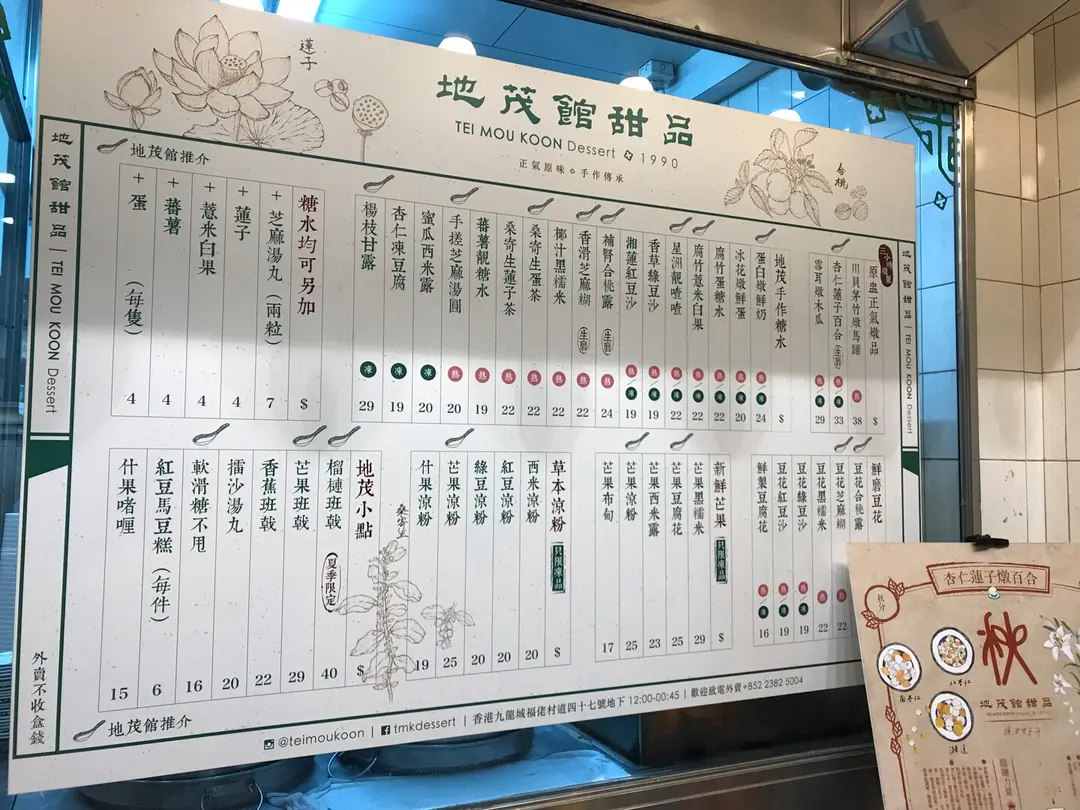 蓮子
地茂館甜品
TEI MOU KOON Dessert 1990
正氣原味 手作傳承
合桃
地茂館甜品 | TEI MOU KOON Dessert
地茂館甜品 | TEI MOU KOON Dessert
地茂館推介
原盅正氣燉品 $
川貝茅竹燉馬蹄 熱 38
杏仁蓮子百合 (生磨) 熱/凍 33
雪耳燉木瓜 熱/凍 29
地茂手作糖水 $
蛋白燉鮮奶 熱/凍 24
冰花燉鮮蛋 熱/凍 20
腐竹蛋糖水 熱/凍 22
腐竹薏米白果 熱/凍 22
星洲靚喳喳 熱/凍 22
香草綠豆沙 熱/凍 19
湘蓮紅豆沙 熱/凍 19
補腎合桃露 (生磨) 熱 24
香滑芝麻糊 (生磨) 熱 22
椰汁黑糯米 熱 22
桑寄生蛋茶 熱 22
桑寄生蓮子茶 熱 22
蕃薯靚糖水 熱 19
手搓芝麻湯圓 熱 20
蜜瓜西米露 凍 20
杏仁凍豆腐 凍 19
楊枝甘露 凍 29
糖水均可另加 $
+ 芝麻湯丸 (兩粒) 7
+ 蓮子 4
+ 薏米白果 4
+ 蕃薯 4
+ 蛋 (每隻) 4
鮮磨豆花
豆花合桃露
豆花芝麻糊 22
豆花黑糯米 熱 22
豆花綠豆沙 熱/凍 19
豆花紅豆沙 熱/凍 19
鮮製豆腐花 熱/凍 16
新鮮芒果 只限凍品 $
芒果黑糯米 29
芒果豆腐花 25
芒果西米露 23
芒果涼粉 25
芒果布甸 17
草本涼粉 只限凍品 $
西米涼粉 20
紅豆涼粉 20
綠豆涼粉 20
芒果涼粉 25
什果涼粉 19
桑寄生
地茂小點 $
榴槤班戟 (夏季限定) 40
芒果班戟 29
香蕉班戟 22
擂沙湯丸 20
軟滑糖不甩 16
紅豆馬豆糕 (每件) 6
什果啫喱 15
外賣不收盒錢
地茂館推介
@teimoukoon | tmkdessert | 香港九龍城福佬村道四十七號地下 12:00-00:45 | 歡迎致電外賣+852 2382 5004
杏仁蓮子燉百合
秋分
秋
南杏仁
北杏仁
湘蓮
地茂館甜品